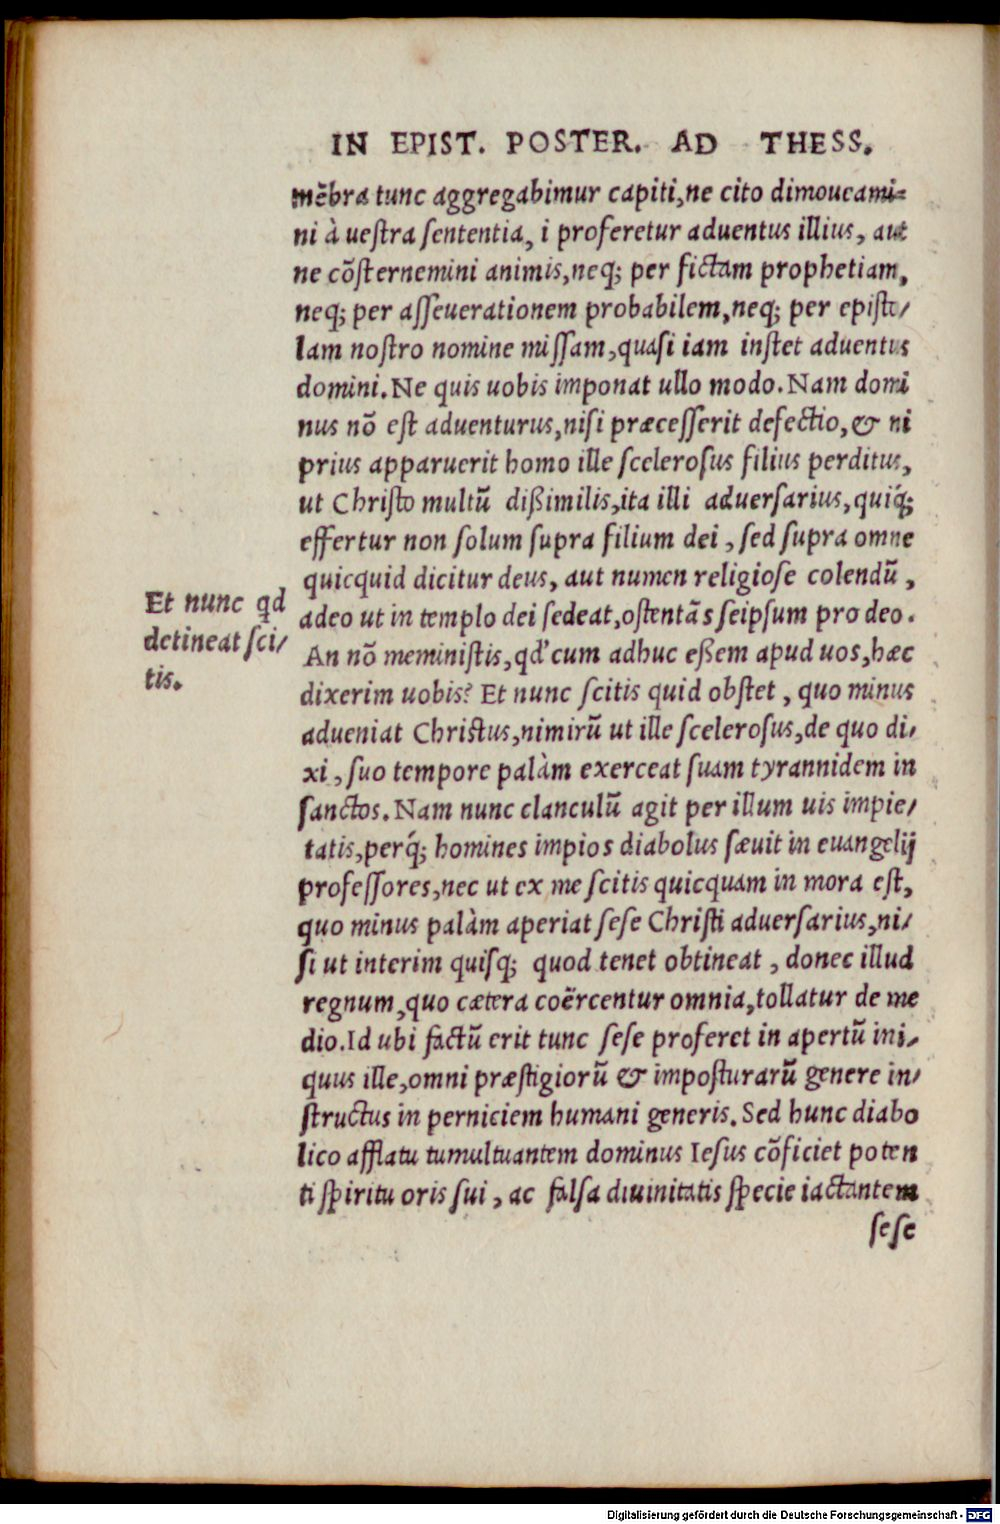 IN EPIST. POSTER. AD THESS.
mẽbra tunc aggregabimur capiti, ne cito dimoueami-
ni à uestra sententia, i proferetur aduentus illius, aut
ne cõsternemini animis, neq; per fictam prophetiam,
neq; per asseuerationem probabilem, neq; per episto/
lam nostro nomine missam, quasi iam instet aduentus
domini. Ne quis uobis imponat ullo modo. Nam domi
nus nõ est aduenturus, nisi præcesserit defectio, & ni
prius apparuerit homo ille scelerosus filius perditus,
ut Christo multũ dißimilis, ita illi aduersarius, quiq́;
effertur non solum supra filium dei, sed supra omne
quicquid dicitur deus, aut numen religiose colendũ,
adeo ut in templo dei sedeat, ostentãs seipsum pro deo.
An nõ meministis, qd' cum adhuc eßem apud uos, hæc
dixerim uobis? Et nunc scitis quid obstet, quo minus
adueniat Christus, nimirũ ut ille scelerosus, de quo di/
xi, suo tempore palàm exerceat suam tyrannidem in
sanctos. Nam nunc clanculũ agit per illum uis impie/
tatis, perq́; homines impios diabolus sæuit in euangelij
professores, nec ut ex me scitis quicquam in mora est,
quo minus palàm aperiat sese Christi aduersarius, ni/
si ut interim quisq; quod tenet obtineat, donec illud
regnum, quo cætera coẽrcentur omnia, tollatur de me
dio. Id ubi factũ erit tunc sese proferet in apertũ ini/
quus ille, omni præstigiorũ & imposturarũ genere in/
structus in perniciem humani generis. Sed hunc diabo
lico afflatu tumultuantem dominus Iesus cõficiet poten
ti spiritu oris sui, ac falsa diuinitatis specie iactantem
sese
Et nunc qd
detineat sci/
tis.
Digitalisierung gefördert durch die Deutsche Forschungsgemeinschaft - DFG